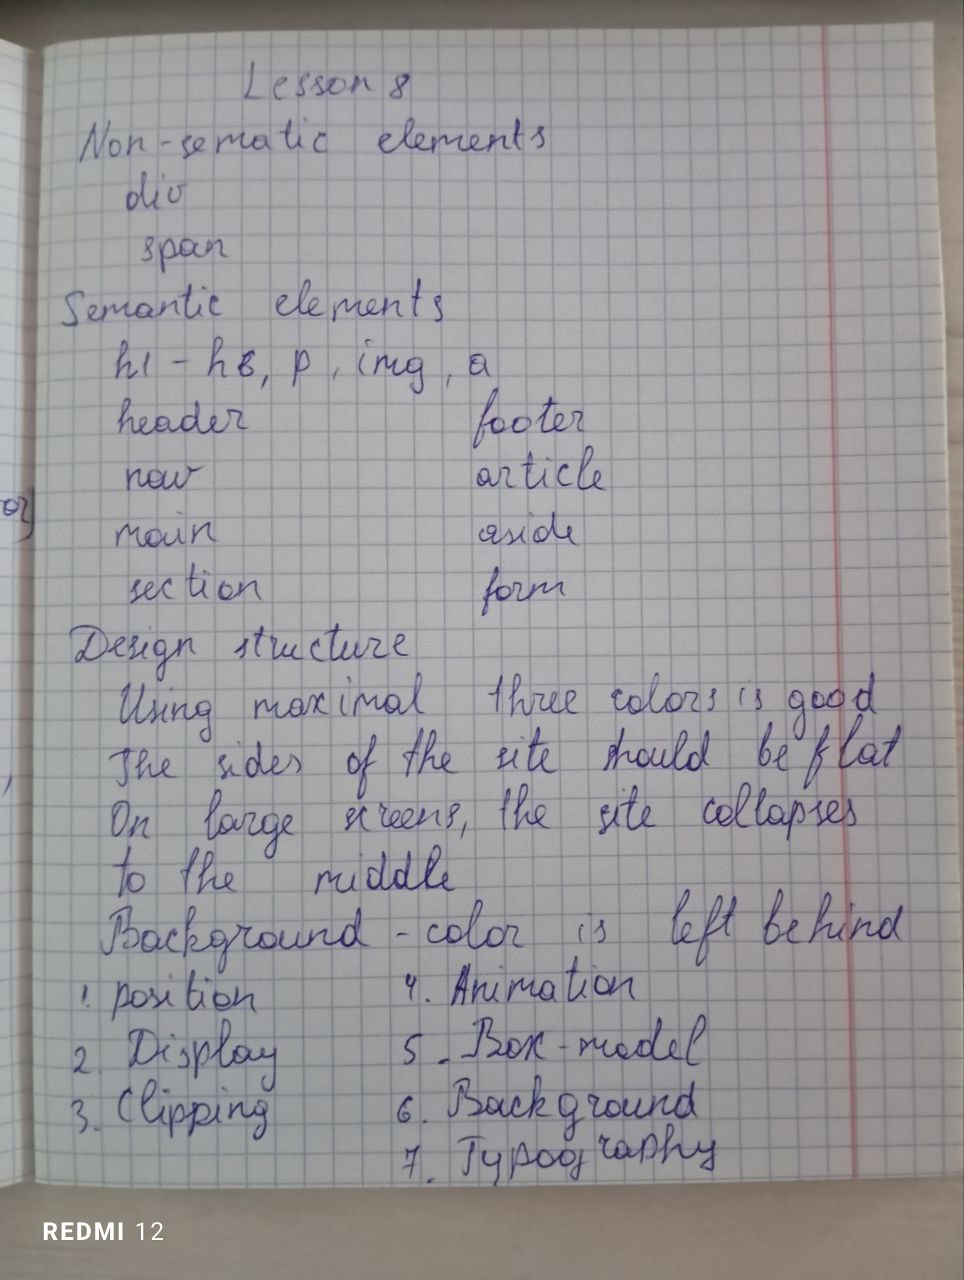 Lesson 8
Non-sematic elements
div
span
Semantic elements
h1 - h6, p, img, a
header footer
nav article
main aside
section form
Design structure
Using maximal three colors is good
The sides of the site should be flat
On large screens, the site collapses
to the middle
Background-color is left behind
1. position 4. Animation
2. Display 5. Box-model
3. Clipping 6. Background
7. Typography
REDMI 12